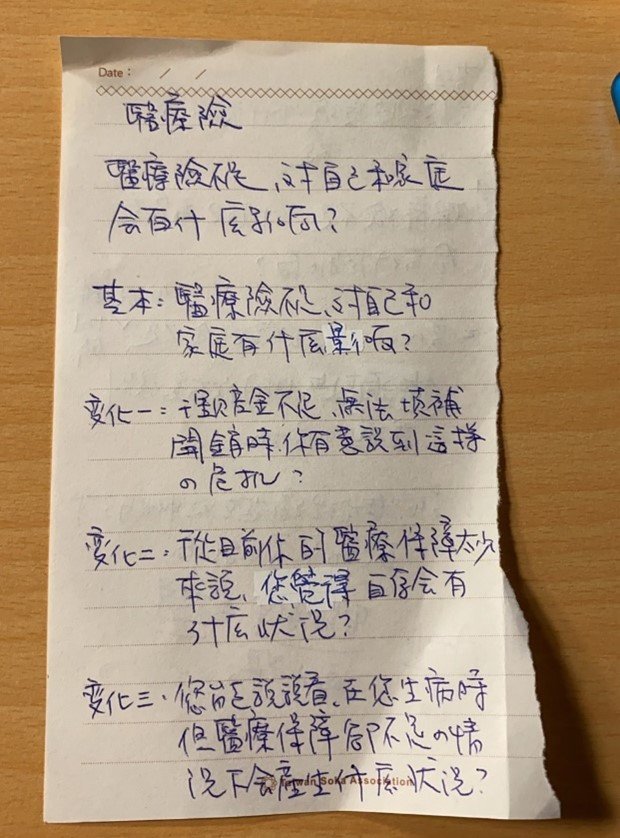 Date : / /
醫療險
醫療險不足、对自己和家庭
会有什麼影响？
基本：醫療險不足、对自己和
家庭有什麼影响？
变化一：預金不足、無法填補
開銷時、你有意識到這樣
の危机？
变化二：從目前你的醫療保障太少
來說、您覺得 会有
什麼狀況？
变化三：您能說說看、在您生病時
但醫療保障卻不足の情
況下会產生什麼狀況？
Taiwan Soka Association